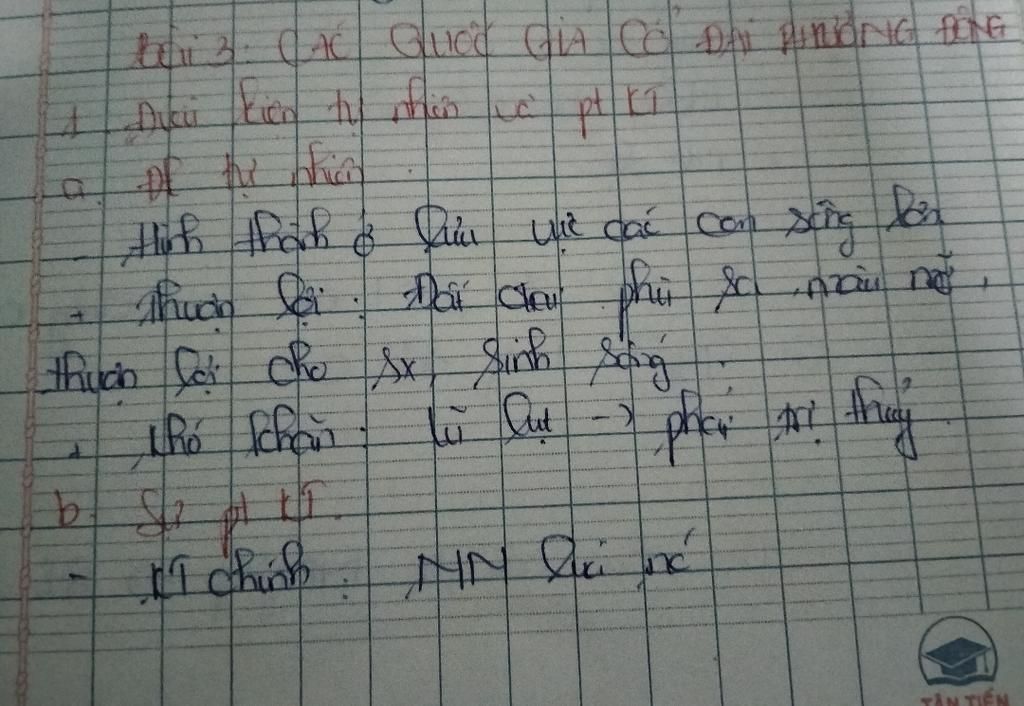 Bài 3. CÁC QUỐC GIA CỔ ĐẠI PHƯƠNG ĐÔNG
1 Điều kiện tự nhiên và pt KT
a. Đk tự nhiên.
- Hình thành ở lưu vực các con sông lớn
+ Thuận lợi: Đất đai phù sa màu mỡ,
thuận lợi cho sx, sinh sống.
+ Khó khăn: lũ lụt -> phải trị thủy.
b. Sự pt KT.
- KT chính: NN lúa nước
TÂN TIẾN